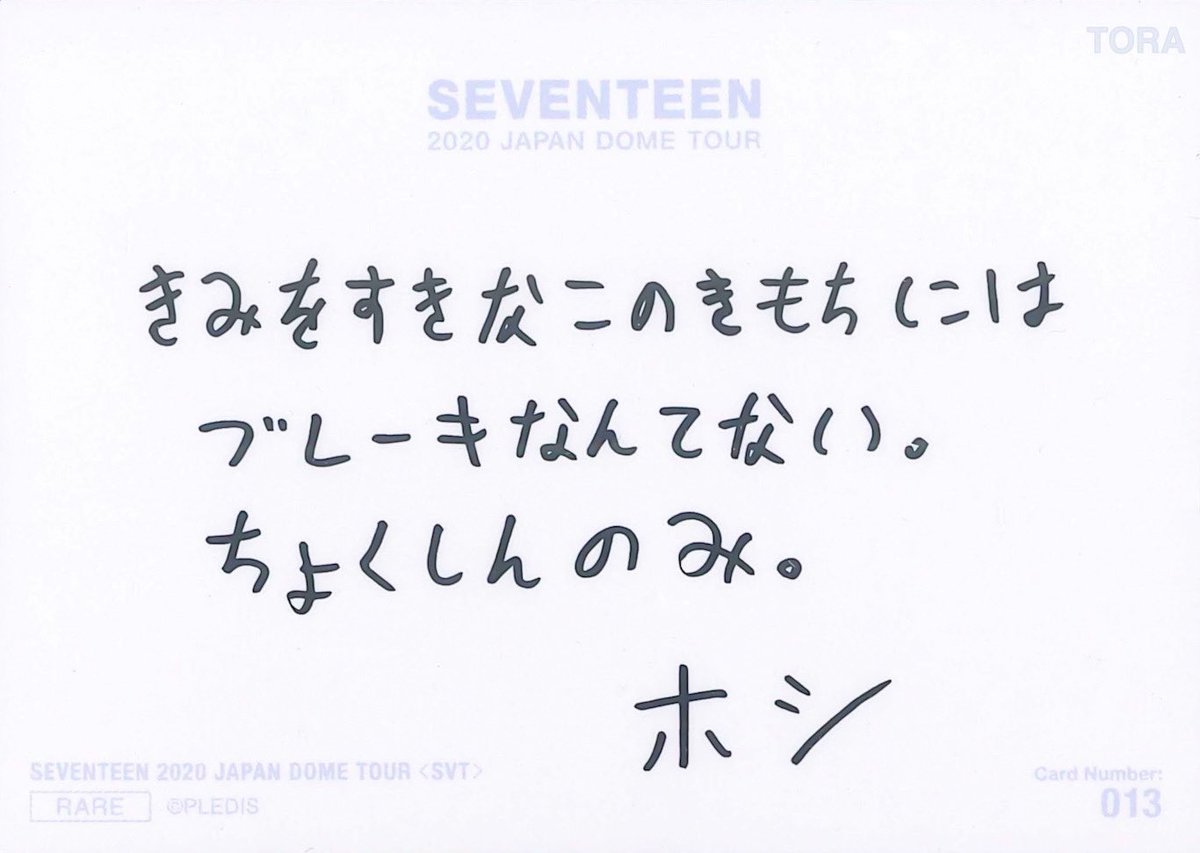 TORA
SEVENTEEN
2020 JAPAN DOME TOUR
きみをすきなこのきもちには
ブレーキなんてない。
ちょくしんのみ。
ホシ
SEVENTEEN 2020 JAPAN DOME TOUR <SVT>
RARE ©PLEDIS
Card Number:
013